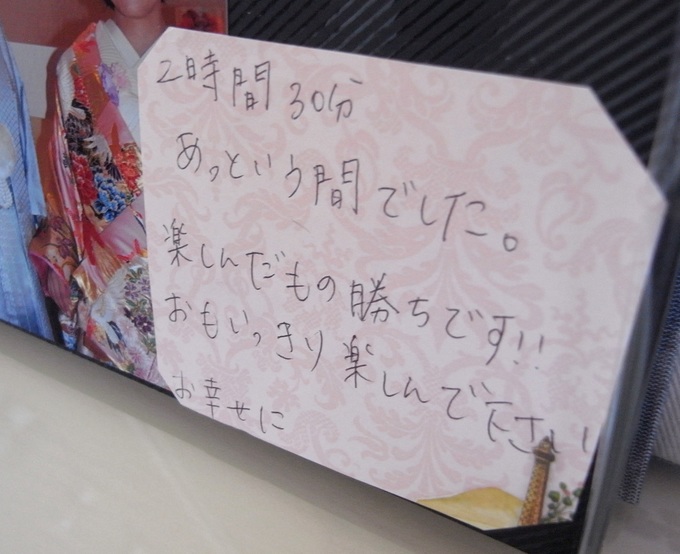 2時間 30分
あっという間でした。
楽しんだもの勝ちです!!
おもいっきり楽しんで下さい
お幸せに